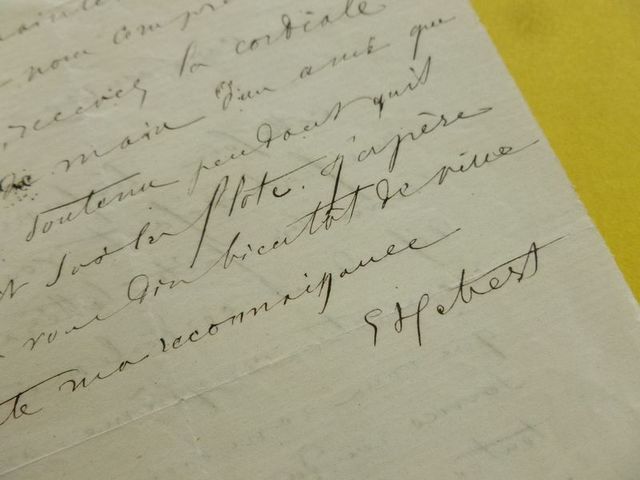 nous compre
recevez la cordiale
de main d'un ami que
soutenu pendant qu'il
sur la flote. J'espère
vous dire bientôt de vive
te ma reconnaissance
EHebert